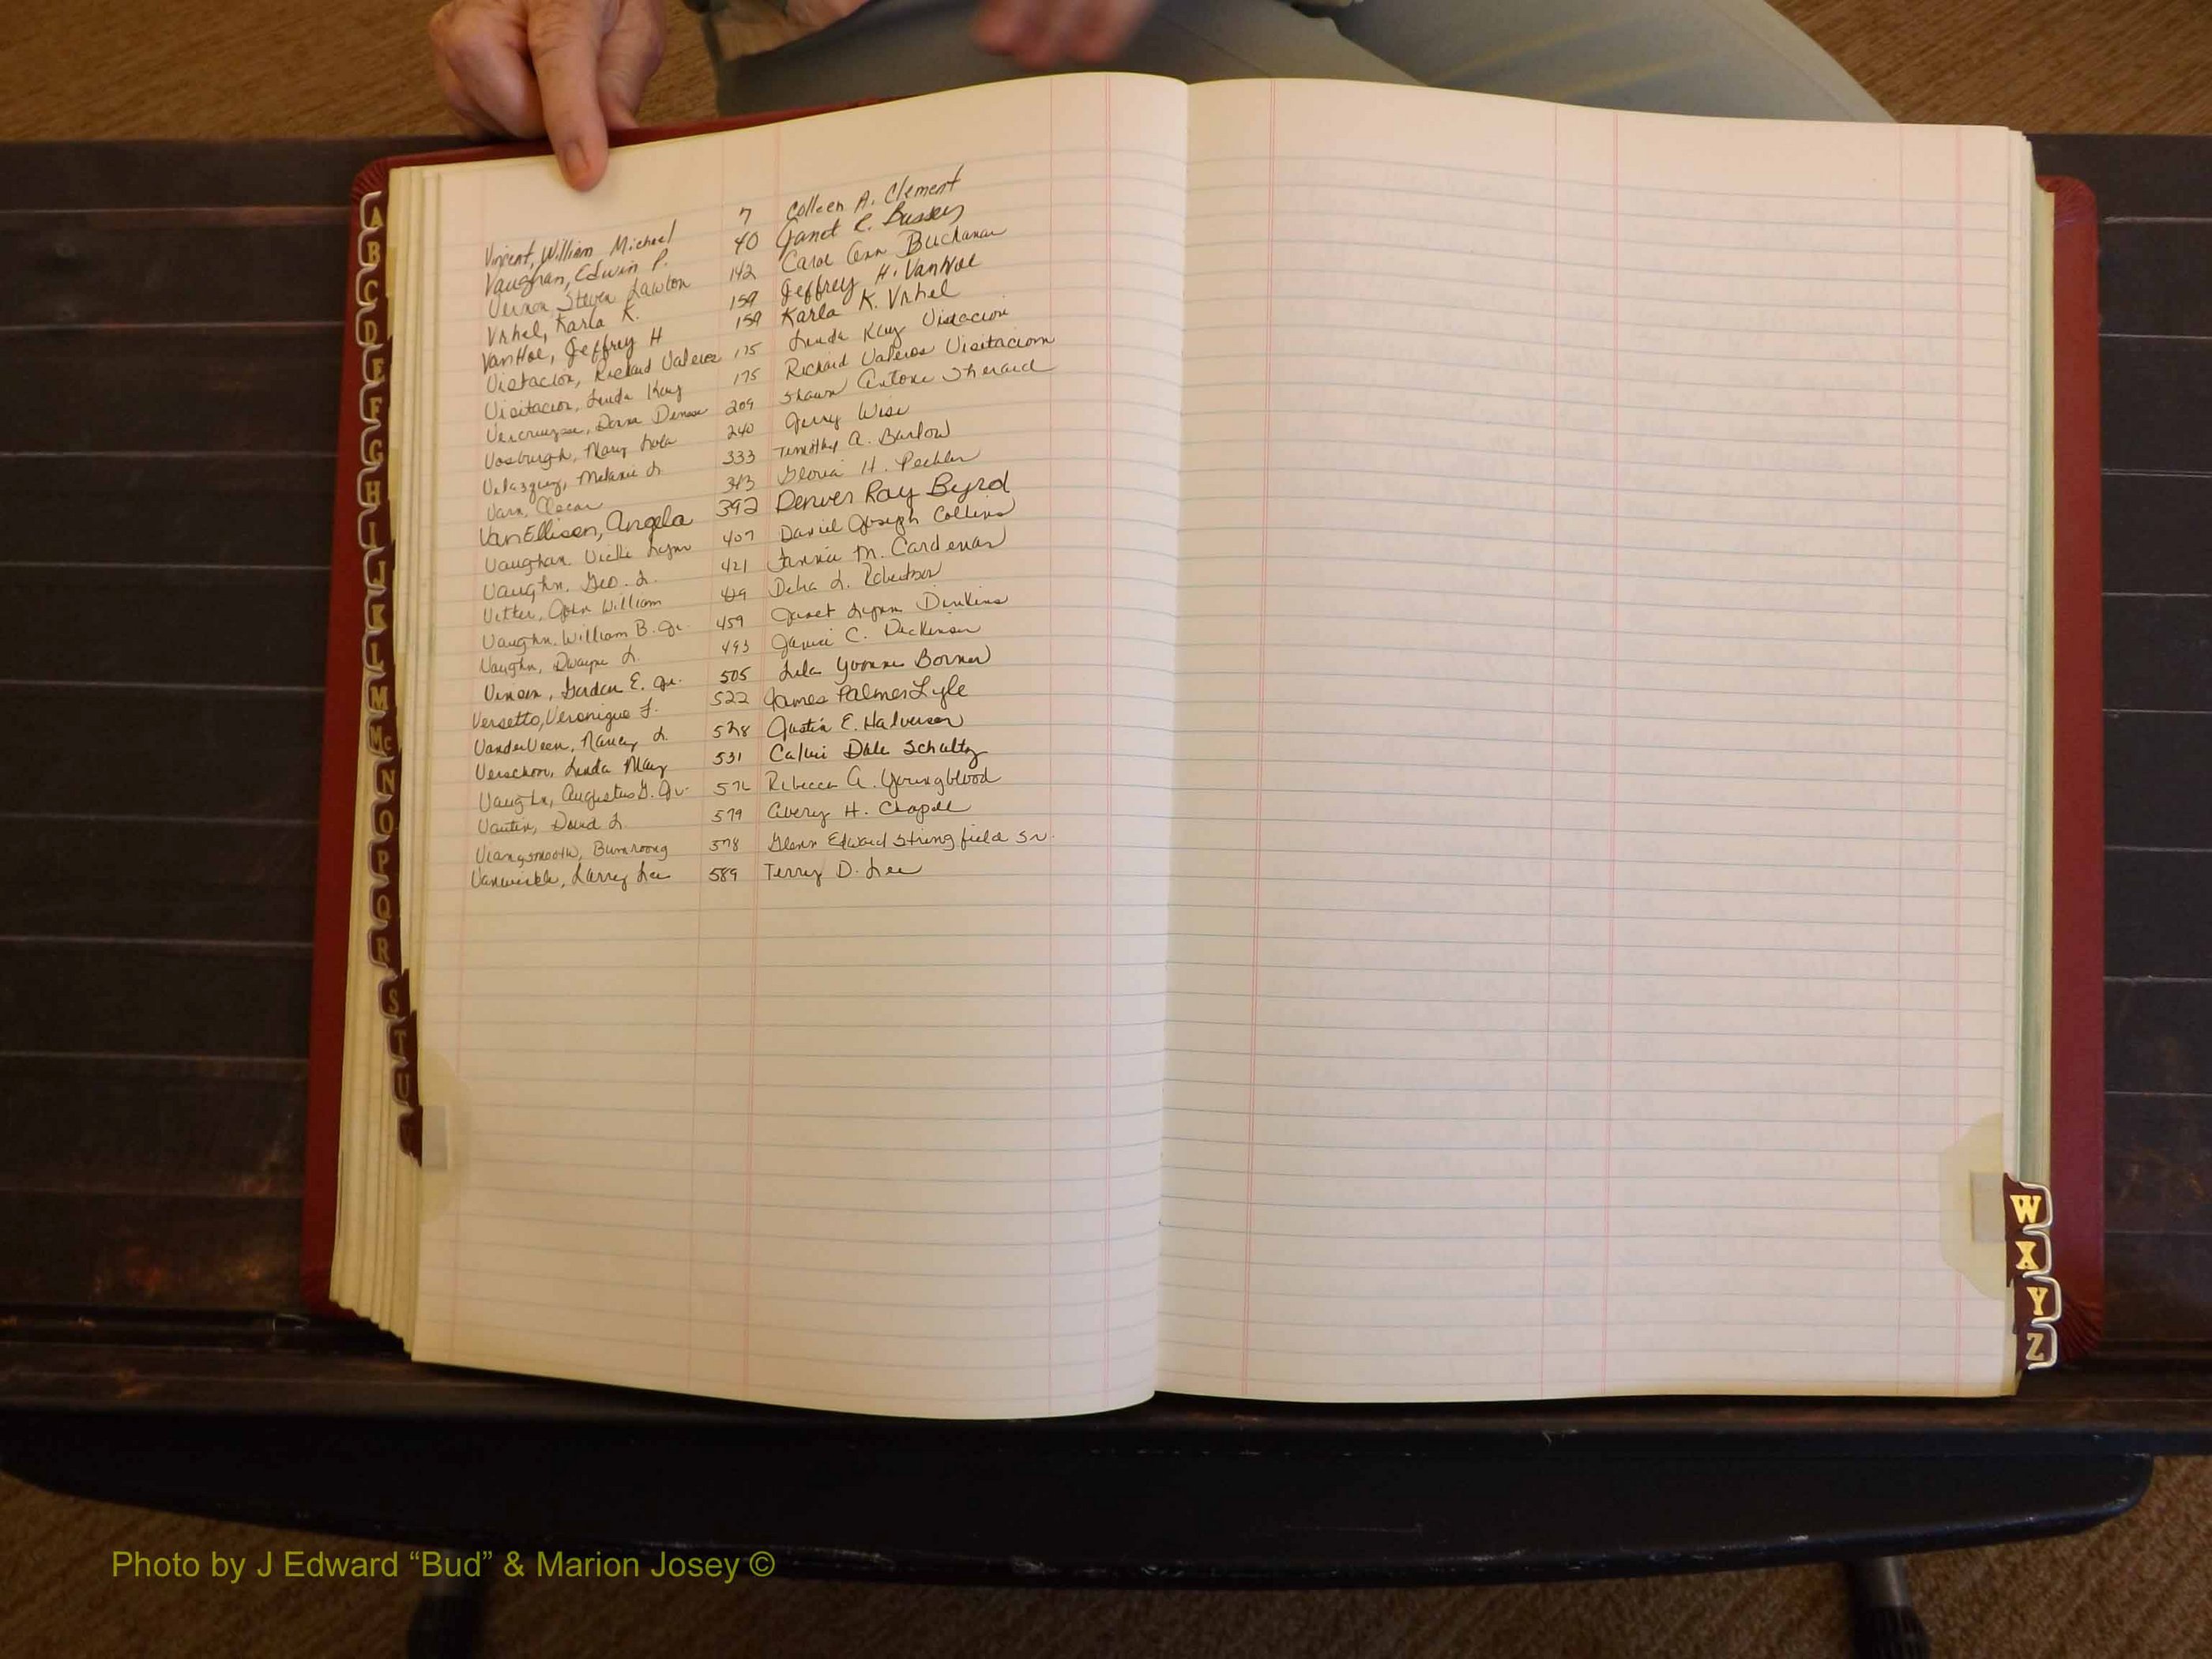 Vincent, William Michael 7 Colleen A. Clement
Vaughan, Edwin P. 40 Janet E. Bussey
Vernon, Steven Lawton 142 Carol Ann Buchanan
Vrhel, Karla K. 159 Jeffrey H. VanHoe
VanHoe, Jeffrey H 159 Karla K. Vrhel
Vistacion, Richard Valeros 175 Linda Kay
Visitacion, Linda Kay 175 Richard Valeros Visitacion
Denise 209 Shawn Antone Sherard
Vosburgh, Mary Lola 240 Jerry Wise
Velazquez, Melanie L. 333 Timothy A. Barlow
Varn, Oscar 343 Gloria H.
VanEllison, Angela 392 Denver Ray Byrd
Vaughan. Vicki Lynn 407 Daniel Joseph Collins
Vaughn. Geo. L. 421 Fannie M. Cardenas
Vetter, John William 429 Debra L. Robertson
Vaughn. William B. Jr. 459 Janet Lynn Dinkins
Vaughn, Dwayne L. 493 Janice C. Dickinson
Vinson, Gordon E. Jr. 505 Lila Yvonne
Versetto, Veronique F. 522 James Palmer Lyle
VanderVeen, Nancy L. 528 Justin E. Halverson
Verschon, Linda May 531 Calvin Dale Schultz
Vaughn, Augustus G. Jr. 576 Rebecca A. Youngblood
Vautin, David L. 579 Avery H. Chapell
578 Glenn Edward Stringfield Sr.
Vanwinkle, Larry Lee 589 Terry D. Lee
A
B
C
D
E
F
G
H
I
J
K
L
M
Mc
N
O
P
Q
R
S
T
U
W
X
Y
Z
Photo by J Edward “Bud” & Marion Josey ©